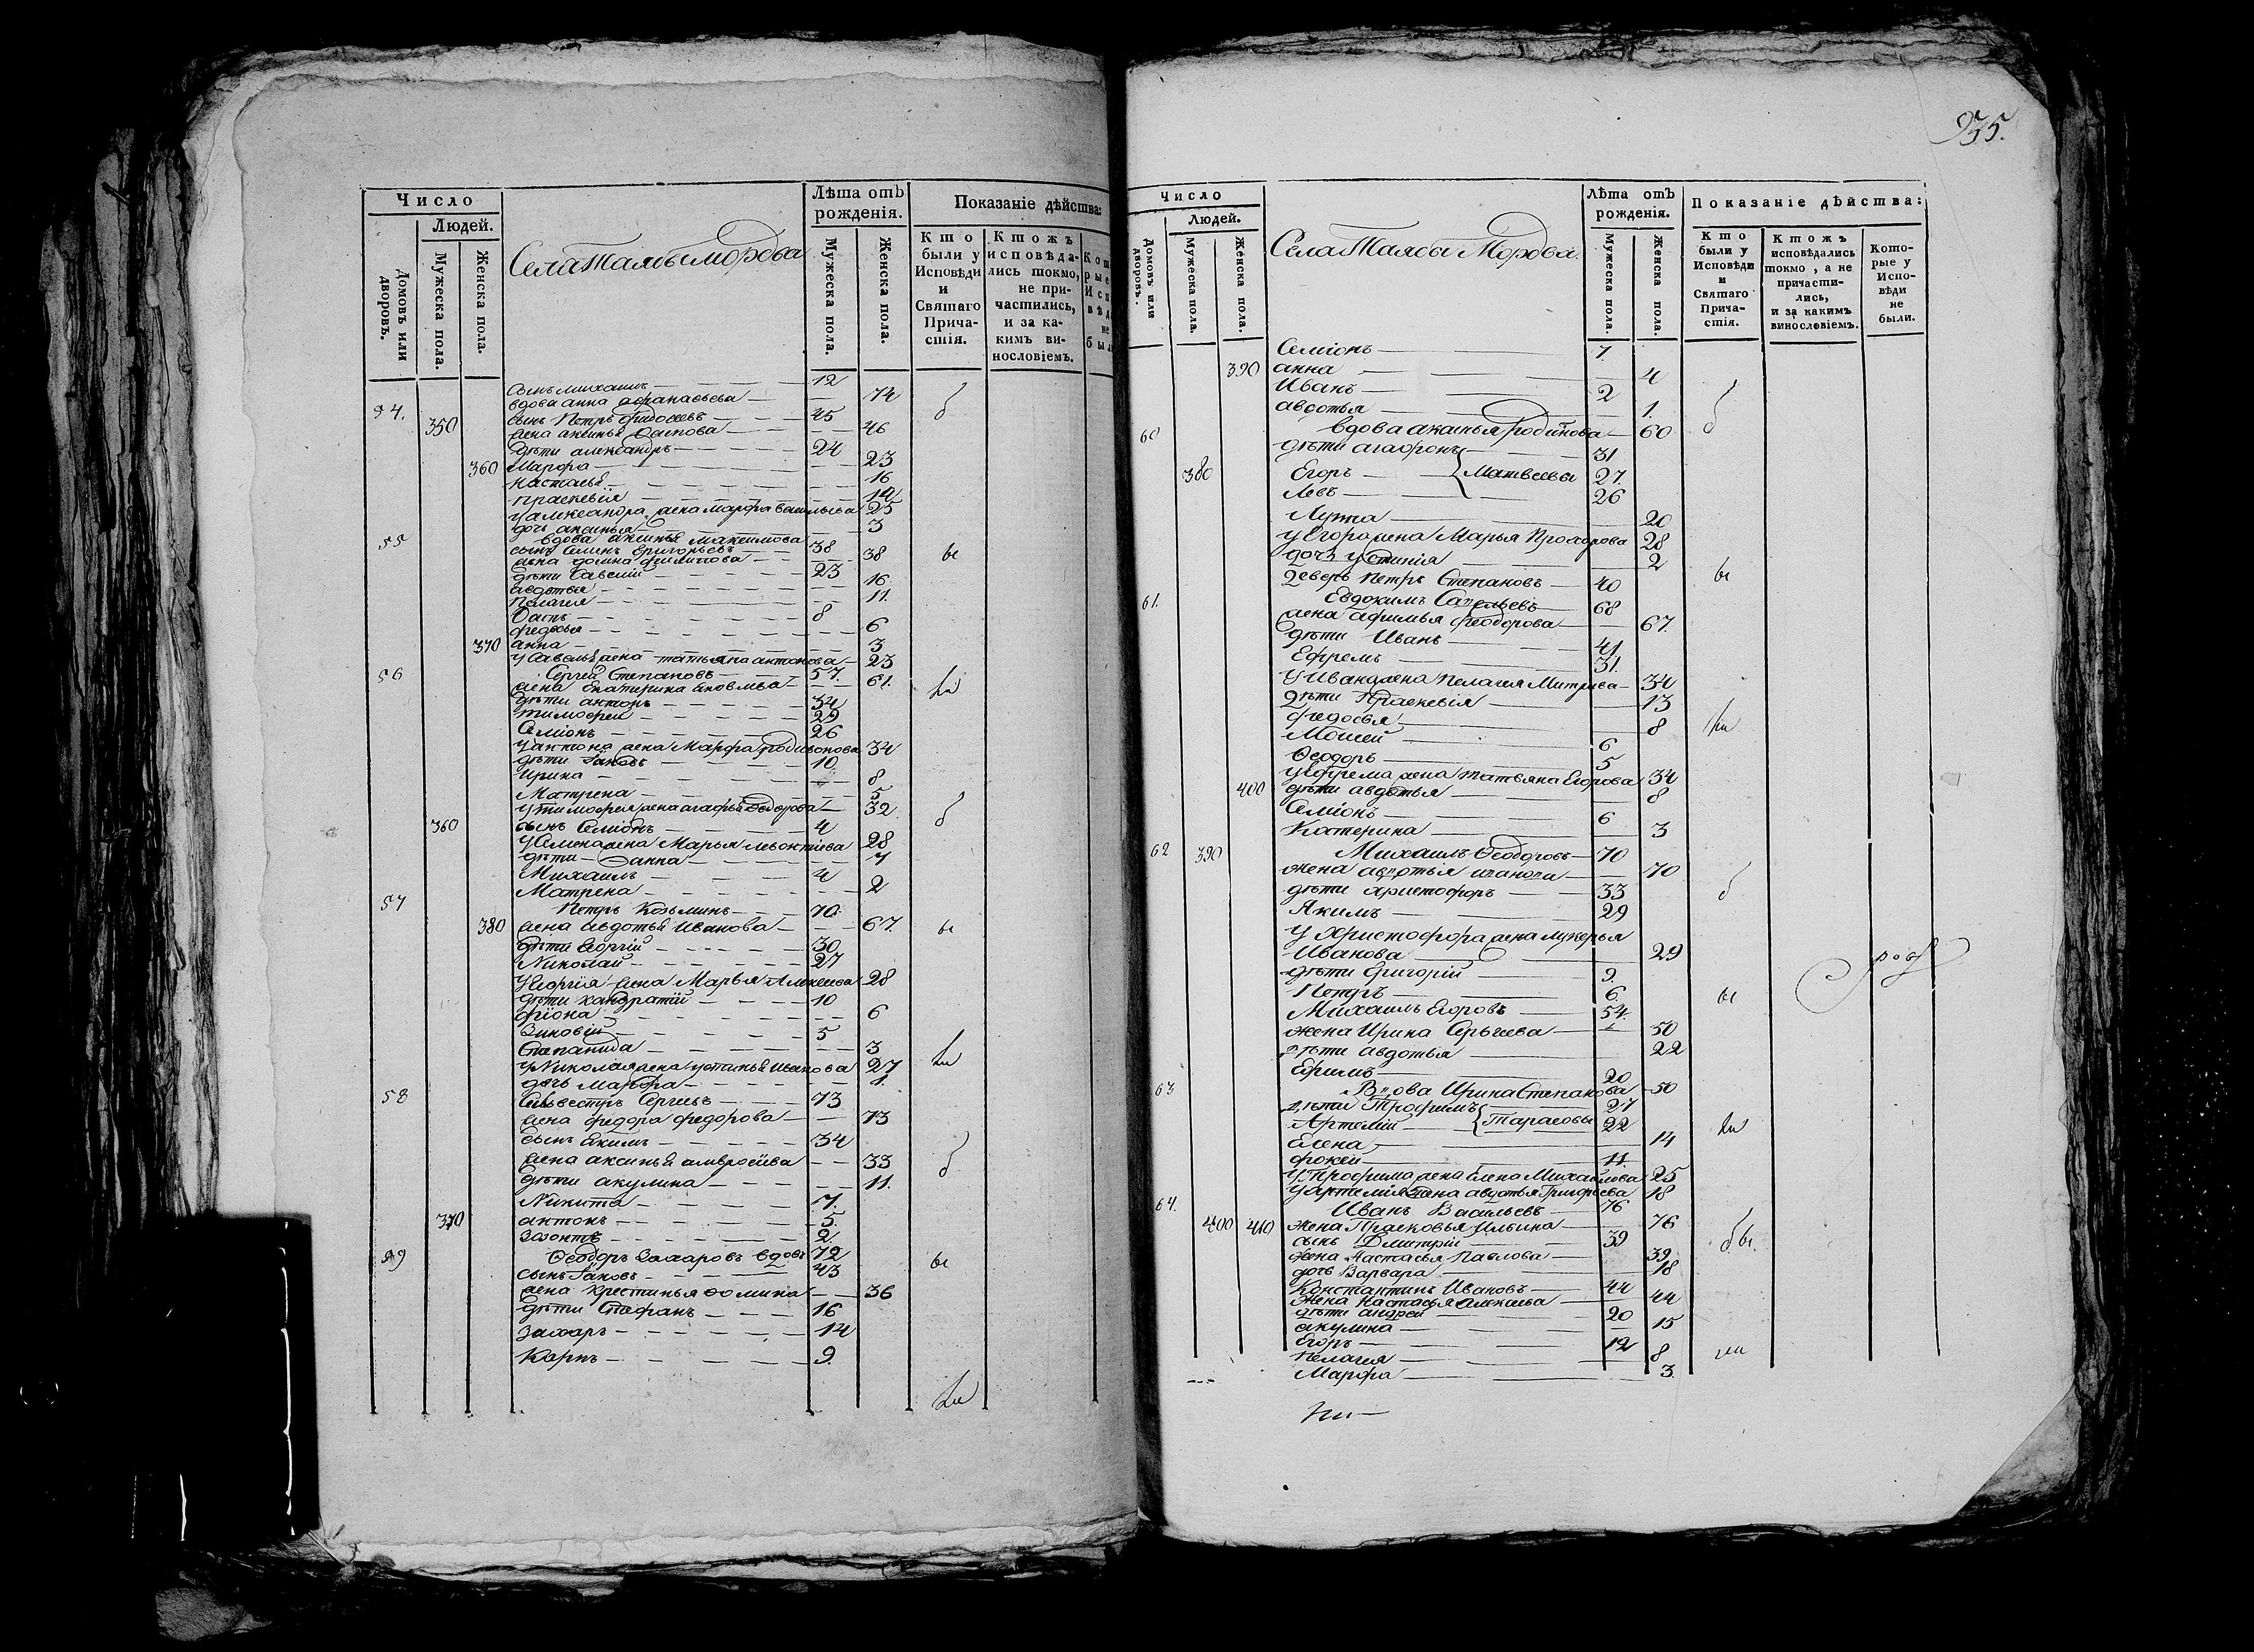 235.
Число
Людей.
Домовъ или дворовъ.
Мужеска пола.
Женска пола.
Села Таябы Мордва
Лѣта отъ рожденія.
Мужеска пола.
Женска пола.
Показаніе дѣйства:
Кто были у Исповѣди и Святаго Причастія.
Ктожъ исповѣдались токмо, не причастились, и за какимъ винословіемъ.
сынъ михаилъ 12
54. вдова анна афанасьева 74
350 сынъ Петръ 45
жена аксинья 46
дѣти александръ 24
360 Марфа 23
настасья 16
праскевія 14
у александра жена марфа васильева 25
дочь аксинья 3
55 вдова аксинья максимова
сынъ Семенъ григорьевъ 38
жена домна филипова 38
дѣти Савелій 23
авдотья 16
Пелагея 11.
8
федосья 6
370 анна 3
у Савелья жена татьяна антонова 23
56 Сергей Степановъ 57.
жена Екатерина яковлева 61.
дѣти антонъ 34
тимофей 29
Семіонъ 26
у антона жена Марфа родивонова 34
дѣти Іаковъ 10
Ирина 8
Матрена 5
у тимофея жена агафья Ѳеодорова 32
360 сынъ Семіонъ 4
у Семена жена Марья левонтиева 28
дѣти анна 7
Михаилъ 4
Матрена 2
57 Петръ Козьминъ 70
380 жена авдотья Иванова 67.
дѣти Георгій 30
Николай 27
у Георгія жена Марья Алексеева 28
дѣти кандратій 10
фіона 6
Зиновій 5
Степанида 3
у Николая жена устинья Иванова 27
дочь Марфа 1.
58 Сильвестръ Сергеевъ 73
жена федора федорова 73
сынъ Екимъ 34
жена аксинья амвросіева 33
дѣти акулина 11.
Никита 7.
370 антонъ 5.
Зазонтъ 2.
59 Ѳеодоръ Захаровъ вдовъ 72
сынъ Іаковъ 43
жена крестинья фомина 36
дѣти Стефанъ 16
Захаръ 14
Карпъ 9.
Число
Людей.
Домовъ или дворовъ.
Мужеска пола.
Женска пола.
Села Таябы Мордва.
Лѣта отъ рожденія.
Мужеска пола.
Женска пола.
Показаніе дѣйства:
Кто были у Исповѣди и Святаго Причастія.
Ктожъ исповѣдались токмо, а не причастились, и за какимъ винословіемъ.
Которые у Исповѣди не были.
Семіонъ 7.
390 анна 4
Иванъ 2
авдотья 1.
60 вдова аксинья родивонова 60
дѣти агафонъ 31
380 Егоръ Матвеевы 27.
Левъ 26
20
у Егора жена Марья Прохорова 28
дочь устинія 2
деверь петръ Степановъ 40
61. Евдокимъ Савельевъ 68
жена афимья феодорова 67.
дѣти Иванъ 41
Ефремъ 31.
у Ивана жена пелагея Митрева 34
дѣти Праскевія 13
федосья 8
Моисей 6
Ѳеодоръ 5
у Ефрема жена татьяна Егорова 34
400 дѣти авдотья 8
Семіонъ 6
Катерина 3
62 390 Михаилъ Ѳеодоровъ 70
жена авдотья 70
дѣти христофоръ 33
Якимъ 29
у христофора жена лукерья
Иванова 29
дѣти Григорій 9.
Петръ 6.
Михаилъ Егоровъ 54.
жена Ирина Сергеева 50
дѣти авдотья 22
Ефимъ 20
63 Вдова Ирина Степанова 50
дѣти Трофимъ 27
Артемій Тарасовы 22
Елена 14
фокей 11
у Трофима жена Елена Михайлова 25
у артемія жена авдотья Григорьева 18
64. Иванъ Васильевъ 76
400 410 жена Прасковья Ильина 76
сынъ Дмитрій 39
жена Настасья Павлова 39.
дочь Варвара 18
Константинъ Ивановъ 44
жена Настасья алексеева 44
дѣти андрей 20
акулина 15
Егоръ 12
пелагея 8
Марфа 3.